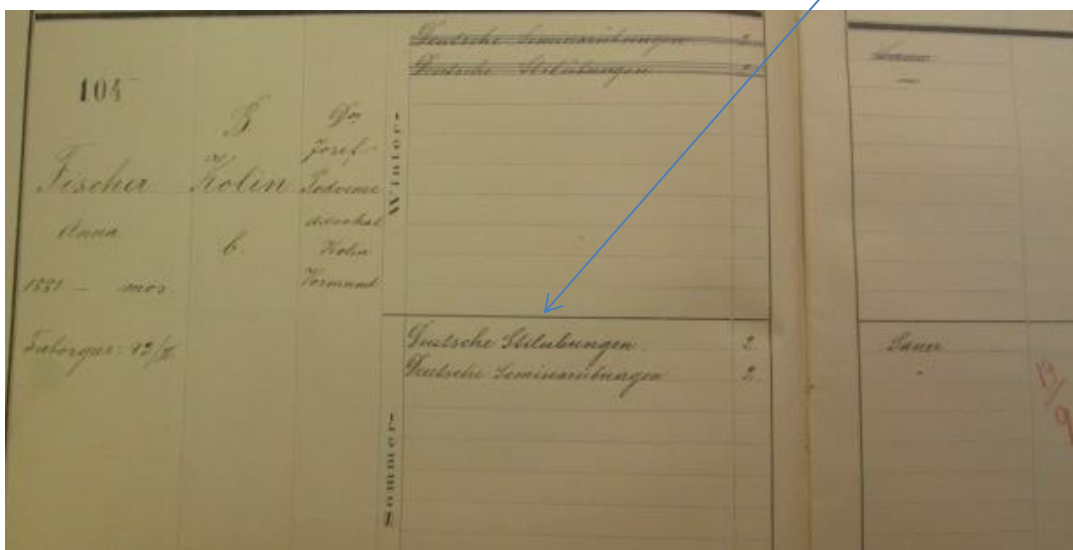 104
Fischer
Anna
1881 – mos.
B
Kolin
b.
Dr
Josef
Advokat
Kolin
Vormund
Winter-
Deutsche Seminarübungen 2
Deutsche Stilübungen 2
Sommer-
Deutsche Stilübungen. 2
Deutsche Seminarübungen 2.
Sauer
19/9